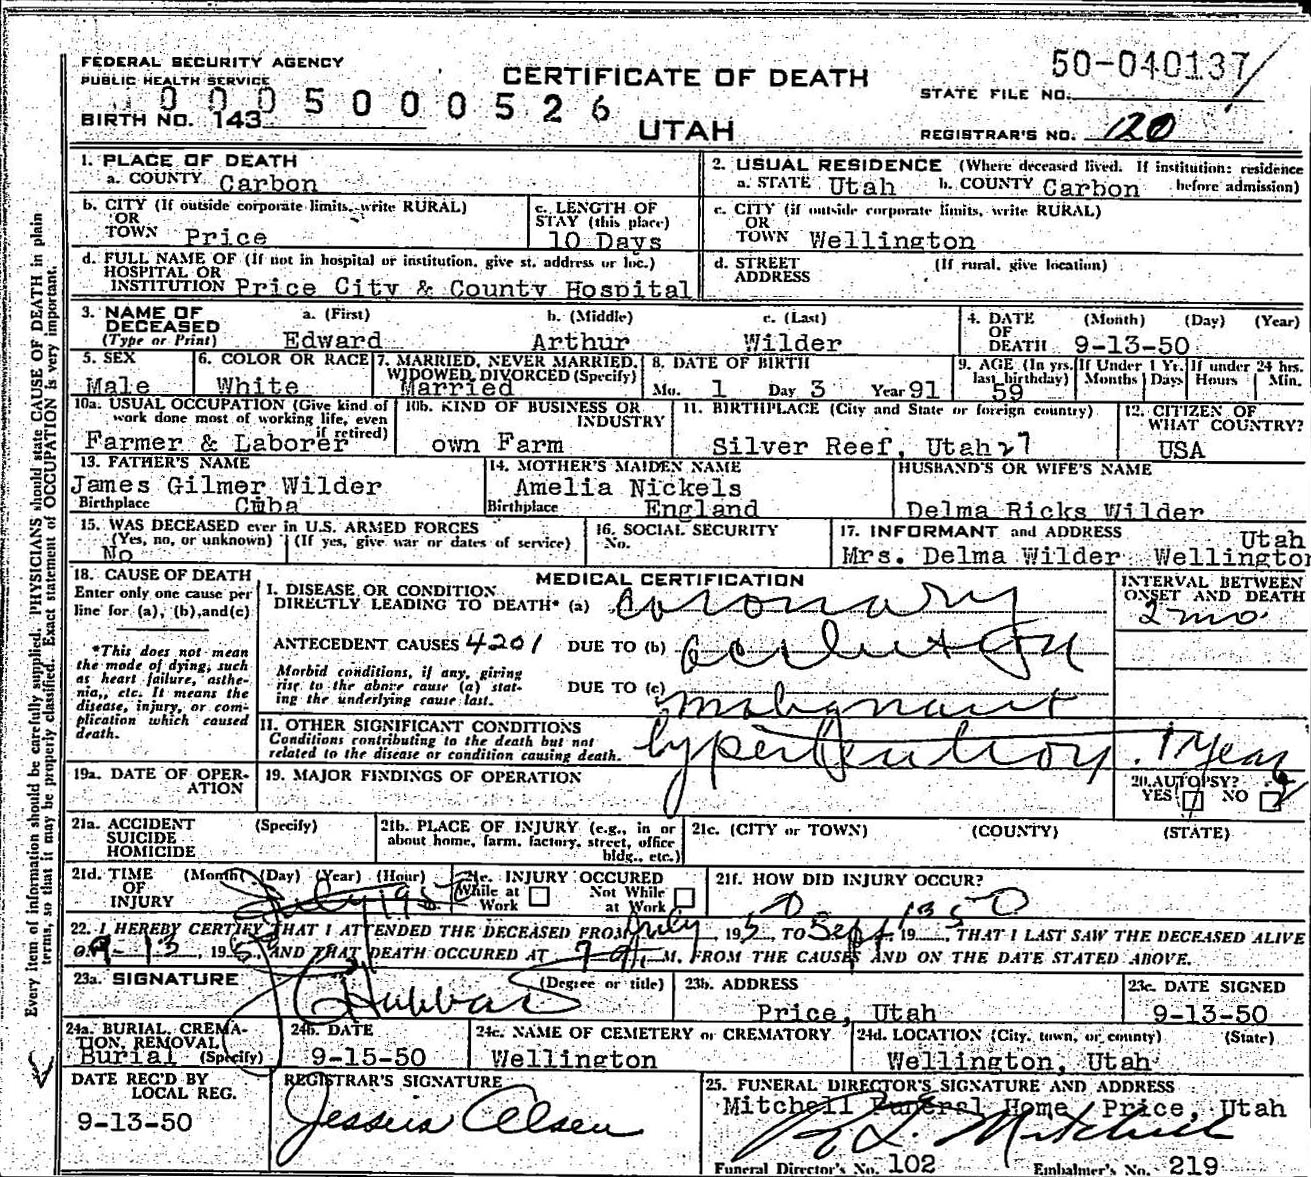 FEDERAL SECURITY AGENCY
PUBLIC HEALTH SERVICE
CERTIFICATE OF DEATH
50-040137
STATE FILE NO.
0005000526
BIRTH NO. 143
UTAH
REGISTRAR'S NO. 120
1. PLACE OF DEATH
a. COUNTY Carbon
2. USUAL RESIDENCE (Where deceased lived. If institution: residence before admission)
a. STATE Utah b. COUNTY Carbon
b. CITY (If outside corporate limits, write RURAL)
OR
TOWN Price
c. LENGTH OF
STAY (this place)
10 Days
c. CITY (if outside corporate limits, write RURAL)
OR
TOWN Wellington
d. FULL NAME OF (If not in hospital or institution, give st. address or loc.)
HOSPITAL OR
INSTITUTION Price City & County Hospital
d. STREET (If rural, give location)
ADDRESS
3. NAME OF a. (First) b. (Middle) c. (Last)
DECEASED
(Type or Print) Edward Arthur Wilder
4. DATE (Month) (Day) (Year)
OF
DEATH 9-13-50
5. SEX
Male
6. COLOR OR RACE
White
7. MARRIED, NEVER MARRIED,
WIDOWED, DIVORCED (Specify)
Married
8. DATE OF BIRTH
Mo. 1 Day 3 Year 91
9. AGE (In yrs. last birthday)
59
If Under 1 Yr.
Months Days
If under 24 hrs.
Hours Min.
10a. USUAL OCCUPATION (Give kind of
work done most of working life, even
if retired)
Farmer & Laborer
10b. KIND OF BUSINESS OR
INDUSTRY
own Farm
11. BIRTHPLACE (City and State or foreign country)
Silver Reef, Utah 27
12. CITIZEN OF
WHAT COUNTRY?
USA
13. FATHER'S NAME
James Gilmer Wilder
Birthplace Cuba
14. MOTHER'S MAIDEN NAME
Amelia Nickels
Birthplace England
HUSBAND'S OR WIFE'S NAME
Delma Ricks Wilder
15. WAS DECEASED ever in U.S. ARMED FORCES
(Yes, no, or unknown) (If yes, give war or dates of service)
No
16. SOCIAL SECURITY
No.
17. INFORMANT and ADDRESS Utah
Mrs. Delma Wilder Wellington
18. CAUSE OF DEATH
Enter only one cause per
line for (a), (b), and (c)
*This does not mean
the mode of dying, such
as heart failure, asthe-
nia, etc. It means the
disease, injury, or com-
plication which caused
death.
MEDICAL CERTIFICATION
INTERVAL BETWEEN
ONSET AND DEATH
I. DISEASE OR CONDITION
DIRECTLY LEADING TO DEATH* (a) coronary
2 mo.
ANTECEDENT CAUSES 4201 DUE TO (b)
Morbid conditions, if any, giving
rise to the above cause (a) stat-
ing the underlying cause last.
DUE TO (c) malignant
II. OTHER SIGNIFICANT CONDITIONS
Conditions contributing to the death but not
related to the disease or condition causing death.
hypertension. 1 year
19a. DATE OF OPER-
ATION
19. MAJOR FINDINGS OF OPERATION
20. AUTOPSY?
YES NO
21a. ACCIDENT (Specify)
SUICIDE
HOMICIDE
21b. PLACE OF INJURY (e.g., in or
about home, farm, factory, street, office
bldg., etc.)
21c. (CITY or TOWN) (COUNTY) (STATE)
21d. TIME (Month) (Day) (Year) (Hour)
OF
INJURY
21e. INJURY OCCURED
While at Work Not While at Work
21f. HOW DID INJURY OCCUR?
22. I HEREBY CERTIFY THAT I ATTENDED THE DECEASED FROM July, 1950 TO Sept 13, 1950, THAT I LAST SAW THE DECEASED ALIVE
ON 9-13, 1950, AND THAT DEATH OCCURED AT M. FROM THE CAUSES AND ON THE DATE STATED ABOVE.
23a. SIGNATURE (Degree or title)
Hubbard
23b. ADDRESS
Price, Utah
23c. DATE SIGNED
9-13-50
24a. BURIAL, CREMA-
TION, REMOVAL
Burial (Specify)
24b. DATE
9-15-50
24c. NAME OF CEMETERY or CREMATORY
Wellington
24d. LOCATION (City, town, or county) (State)
Wellington, Utah
DATE REC'D BY
LOCAL REG.
9-13-50
REGISTRAR'S SIGNATURE
25. FUNERAL DIRECTOR'S SIGNATURE AND ADDRESS
Mitchell Funeral Home Price, Utah
Mitchell
Funeral Director's No. 102 Embalmer's No. 219
Every item of information should be carefully supplied. PHYSICIANS should state CAUSE OF DEATH in plain
terms, so that it may be properly classified. Exact statement of OCCUPATION is very important.